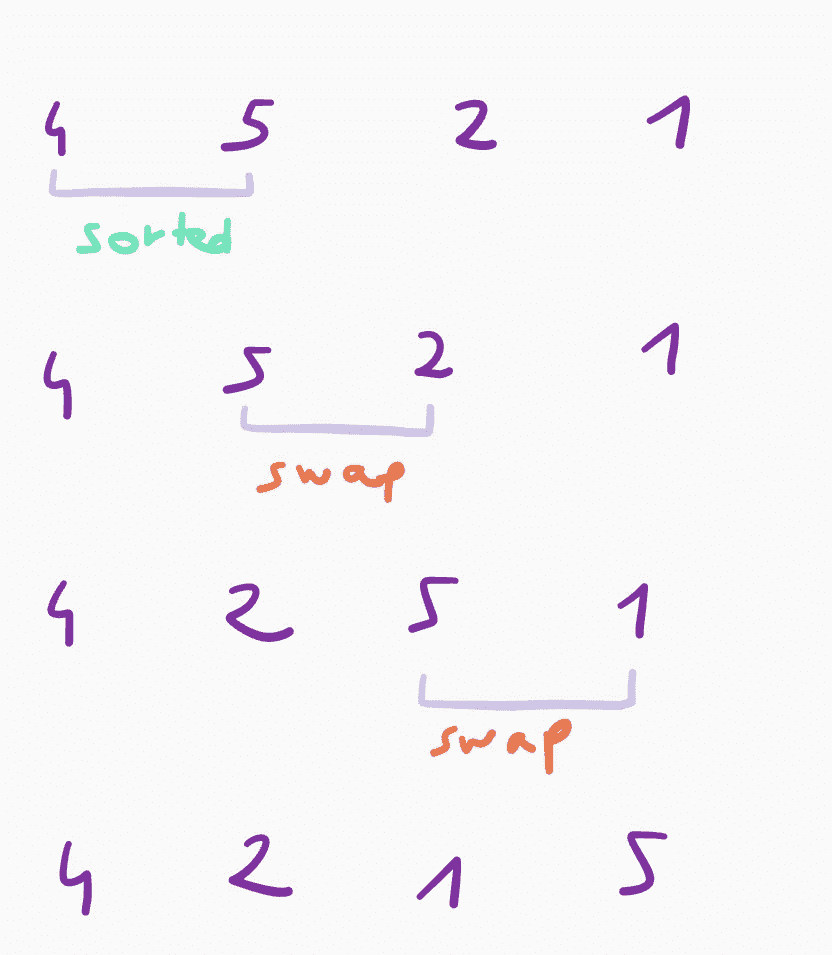 4 5 2 1
sorted
4 5 2 1
swap
4 2 5 1
swap
4 2 1 5